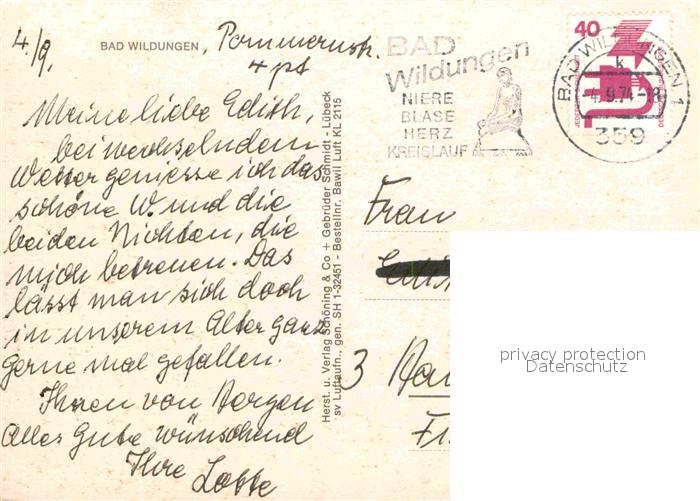 4./9.
BAD WILDUNGEN, Pommernstr.
4 pt
Meine liebe Edith,
bei wechselndem
Wetter geniesse ich das
schöne W. und die
beiden Nichten, die
mich betreuen. Das
lässt man sich doch
in unserem Alter ganz
gerne mal gefallen.
Ihnen von Herzen
alles Gute wünschend
Ihre Lotte
Herst. u. Verlag Schöning & Co + Gebrüder Schmidt - Lübeck
sv Luftaufn., gen. SH 1-32451 - Bestellnr. Bawil Luft KL 2115
BAD
Wildungen
NIERE
BLASE
HERZ
KREISLAUF
40
BAD WILDUNGEN 1
k
-4.9.74-18
359
Frau
3 Ha
privacy protection
Datenschutz